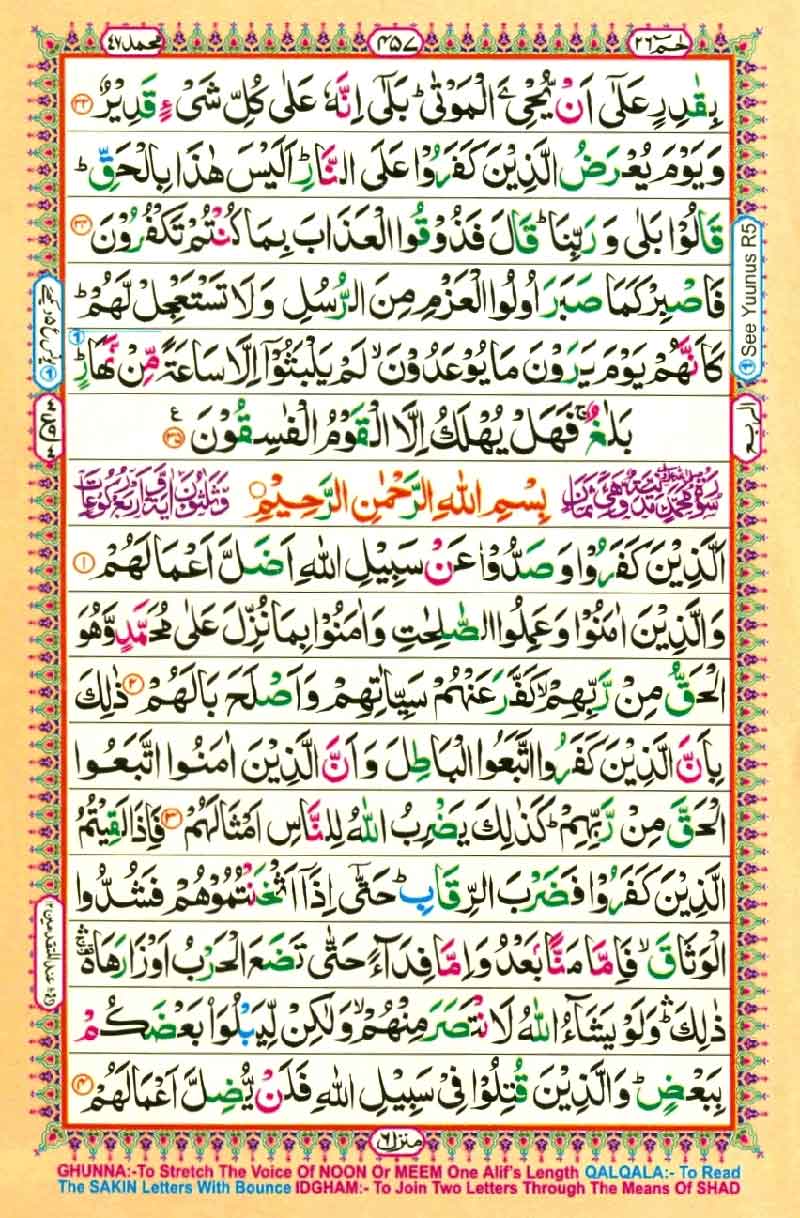 حٰمٓ ٢٦
٤٥٧
محمد ٤٧
بِقٰدِرٍ عَلٰۤی اَنْ یُّحْیِۦَ الْمَوْتٰی ؕ بَلٰۤی اِنَّهٗ عَلٰی كُلِّ شَیْءٍ قَدِیْرٌ ﴿۳۳﴾
وَ یَوْمَ یُعْرَضُ الَّذِیْنَ كَفَرُوْا عَلَی النَّارِ ؕ اَلَیْسَ هٰذَا بِالْحَقِّ ؕ
قَالُوْا بَلٰی وَ رَبِّنَا ؕ قَالَ فَذُوْقُوا الْعَذَابَ بِمَا كُنْتُمْ تَكْفُرُوْنَ ﴿۳۴﴾
فَاصْبِرْ كَمَا صَبَرَ اُولُوا الْعَزْمِ مِنَ الرُّسُلِ وَ لَا تَسْتَعْجِلْ لَّهُمْ ؕ
كَاَنَّهُمْ یَوْمَ یَرَوْنَ مَا یُوْعَدُوْنَ ۙ لَمْ یَلْبَثُوْۤا اِلَّا سَاعَةً مِّنْ نَّهَارٍ ؕ
بَلٰغٌ ۚ فَهَلْ یُهْلَكُ اِلَّا الْقَوْمُ الْفٰسِقُوْنَ ﴿۳۵﴾
بِسْمِ اللّٰهِ الرَّحْمٰنِ الرَّحِیْمِ
اَلَّذِیْنَ كَفَرُوْا وَ صَدُّوْا عَنْ سَبِیْلِ اللّٰهِ اَضَلَّ اَعْمَالَهُمْ ﴿۱﴾
وَ الَّذِیْنَ اٰمَنُوْا وَ عَمِلُوا الصّٰلِحٰتِ وَ اٰمَنُوْا بِمَا نُزِّلَ عَلٰی مُحَمَّدٍ وَّ هُوَ
الْحَقُّ مِنْ رَّبِّهِمْ ۙ كَفَّرَ عَنْهُمْ سَیِّاٰتِهِمْ وَ اَصْلَحَ بَالَهُمْ ﴿۲﴾ ذٰلِكَ
بِاَنَّ الَّذِیْنَ كَفَرُوا اتَّبَعُوا الْبَاطِلَ وَ اَنَّ الَّذِیْنَ اٰمَنُوا اتَّبَعُوا
الْحَقَّ مِنْ رَّبِّهِمْ ؕ كَذٰلِكَ یَضْرِبُ اللّٰهُ لِلنَّاسِ اَمْثَالَهُمْ ﴿۳﴾ فَاِذَا لَقِیْتُمُ
الَّذِیْنَ كَفَرُوْا فَضَرْبَ الرِّقَابِ ؕ حَتّٰۤی اِذَاۤ اَثْخَنْتُمُوْهُمْ فَشُدُّوا
الْوَثَاقَ ۙ فَاِمَّا مَنًّۢا بَعْدُ وَ اِمَّا فِدَآءً حَتّٰی تَضَعَ الْحَرْبُ اَوْزَارَهَا
ذٰلِكَ ؕۛ وَ لَوْ یَشَآءُ اللّٰهُ لَانْتَصَرَ مِنْهُمْ ۙ وَ لٰكِنْ لِّیَبْلُوَا۠ بَعْضَكُمْ
بِبَعْضٍ ؕ وَ الَّذِیْنَ قُتِلُوْا فِیْ سَبِیْلِ اللّٰهِ فَلَنْ یُّضِلَّ اَعْمَالَهُمْ ﴿۴﴾
See Yuunus R5
الربع
منزل ٦
GHUNNA:-To Stretch The Voice Of NOON Or MEEM One Alif's Length QALQALA:- To Read
The SAKIN Letters With Bounce IDGHAM:- To Join Two Letters Through The Means Of SHAD